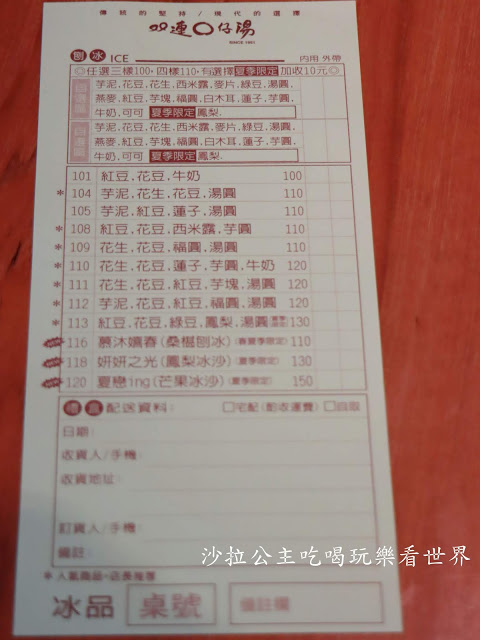 傳統的堅持/現代的選擇
双連○仔湯
SINCE 1951
刨冰 ICE 內用 外帶
◎任選三樣100,四樣110,有選擇夏季限定加收10元◎
芋泥.花豆.花生.西米露.麥片.綠豆.湯圓.
燕麥.紅豆.芋塊.福圓.白木耳.蓮子.芋圓.
牛奶.可可 夏季限定 鳳梨.
芋泥.花豆.花生.西米露.麥片.綠豆.湯圓.
燕麥.紅豆.芋塊.福圓.白木耳.蓮子.芋圓.
牛奶.可可 夏季限定 鳳梨.
101 紅豆.花豆.牛奶 100
* 104 芋泥.花生.花豆.湯圓 110
105 芋泥.紅豆.蓮子.湯圓 110
* 108 紅豆.花豆.西米露.芋圓 110
* 109 花生.花豆.福圓.湯圓 110
* 110 花生.花豆.蓮子.芋圓.牛奶 120
* 111 花生.花豆.紅豆.芋塊.湯圓 120
* 112 芋泥.花豆.紅豆.福圓.湯圓 120
* 113 紅豆.花豆.綠豆.鳳梨.湯圓 130
116 慕沐嬉春(桑椹刨冰)(春夏季限定) 110
118 妍妍之光(鳳梨冰沙)(夏季限定) 130
120 夏戀ing(芒果冰沙)(夏季限定) 150
禮盒配送資料: □宅配(酌收運費) □自取
日期:
收貨人/手機:
收貨地址:
訂貨人/手機:
備註:
*人氣商品-店長推荐
冰品 桌號 備註欄
沙拉公主吃喝玩樂看世界